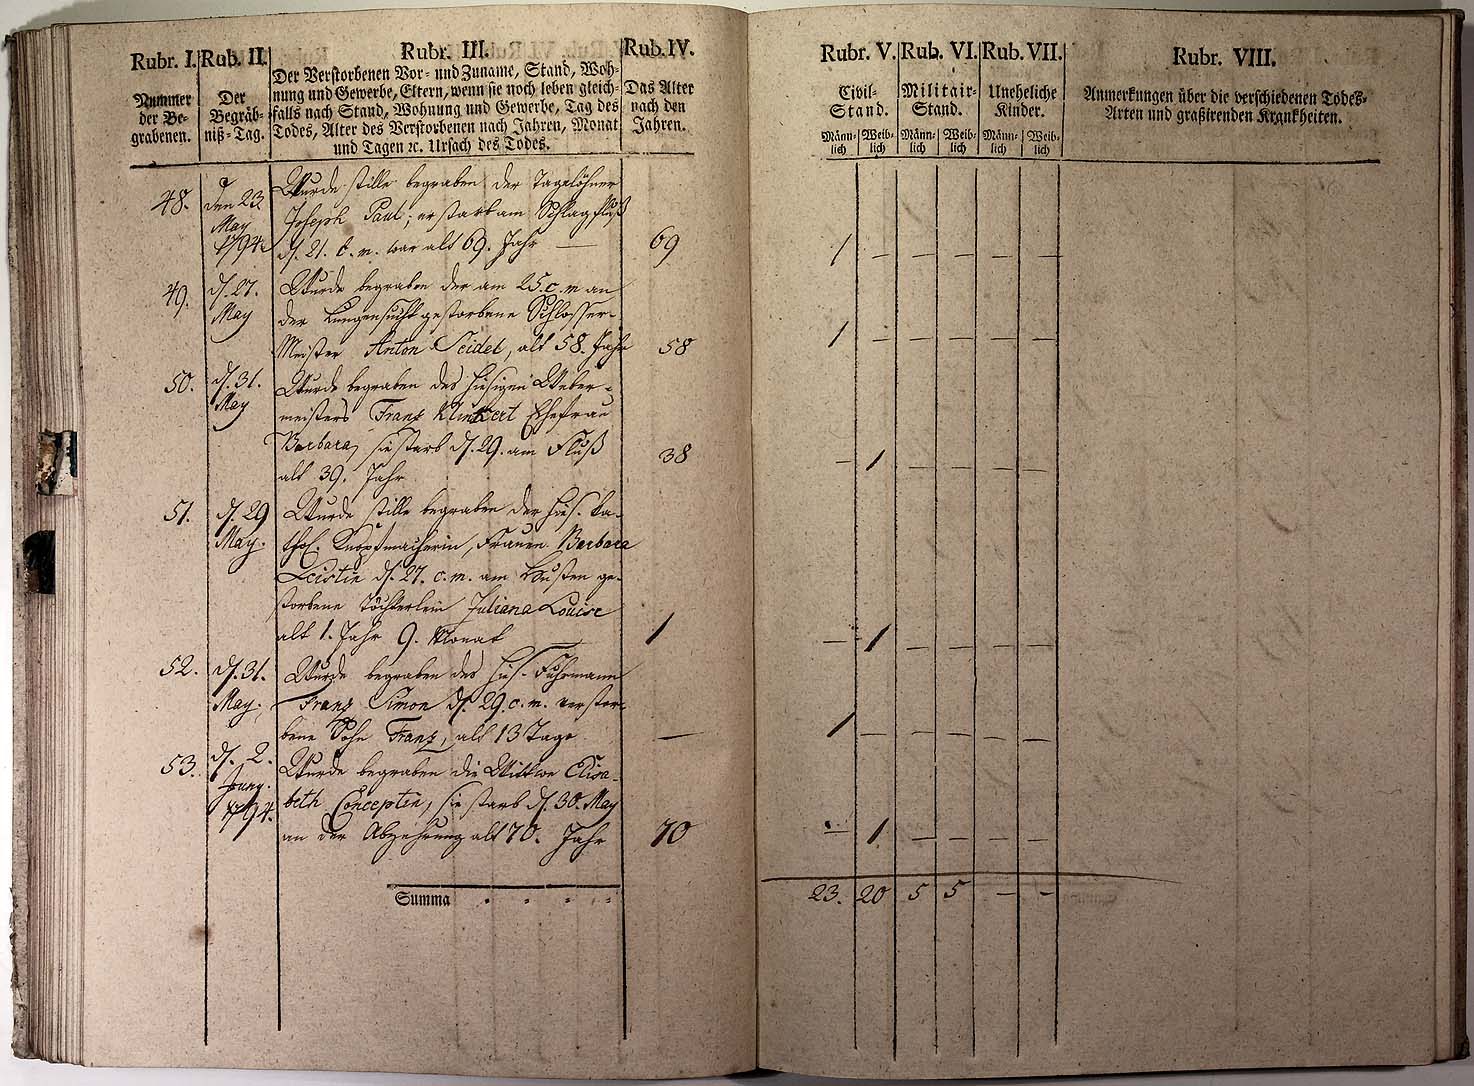 Rubr. I.
Nummer
der Be-
grabenen.
Rub. II.
Der
Begräb-
niß-Tag.
Rubr. III.
Der Verstorbenen Vor- und Zuname, Stand, Woh-
nung und Gewerbe, Eltern, wenn sie noch leben gleich-
falls nach Stand, Wohnung und Gewerbe, Tag des
Todes, Alter des Verstorbenen nach Jahren, Monat
und Tagen ꝛc. Ursach des Todes.
Rub. IV.
Das Alter
nach den
Jahren.
Rubr. V.
Civil-
Stand.
Männ-
lich
Weib-
lich
Rub. VI.
Militair-
Stand.
Männ-
lich
Weib-
lich
Rub. VII.
Uneheliche
Kinder.
Männ-
lich
Weib-
lich
Rubr. VIII.
Anmerkungen über die verschiedenen Todes-
Arten und graßirenden Krankheiten.
48.
den 23.
May
1794.
Wurde stille begraben der Tagelöhner
Joseph Paul; er starb am Schlagfluß
d. 21. c. m. war alt 69. Jahr —
69
1 — — — — —
49.
d. 27.
May
Wurde begraben der am 25. c. m an
der Lungensucht gestorbene Schlosser-
Meister Anton Seidel, alt 58. Jahr
58
1 — — — — —
50.
d. 31.
May
Wurde begraben des hiesigen Weber-
meisters Franz Klinkert Ehefrau
Barbara, sie starb d. 29. am Fluß
alt 39. Jahr
38
— 1 — — — —
51.
d. 29
May.
Wurde stille begraben der hies. ka-
thol. Knopfmacherin, Frauen Barbara
Leistin d. 27. c. m. am Husten ge-
storbene Töchterlein Juliana Louise
alt 1. Jahr 9. Monat
1
— 1 — — — —
52.
d. 31.
May.
Wurde begraben des hies. Fuhrmann
Franz Simon d. 29. c. m. verstor-
bene Sohn Franz, alt 13 Tage
—
1 — — — — —
53.
d. 2.
Juny.
1794.
Wurde begraben die Wittwe Elisa-
beth Conceptin, sie starb d. 30. May
an der Abzehrung alt 70. Jahr
70
— 1 — — — —
Summa
23. 20 5 5 — —